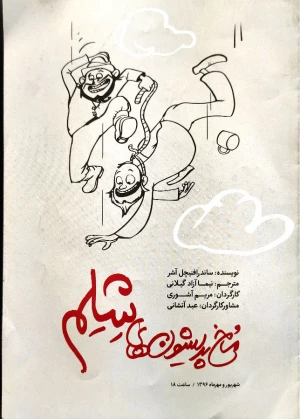 نویسنده: ساندرافنیچل آشر
مترجم: نیما آزاد گیلانی
کارگردان: مریم آشوری
مشاور کارگردان: عبد آتشانی
مُخ پریشون‌های شِیلِم
شهریور و مهرماه ۱۳۹۶ / ساعت ۱۸